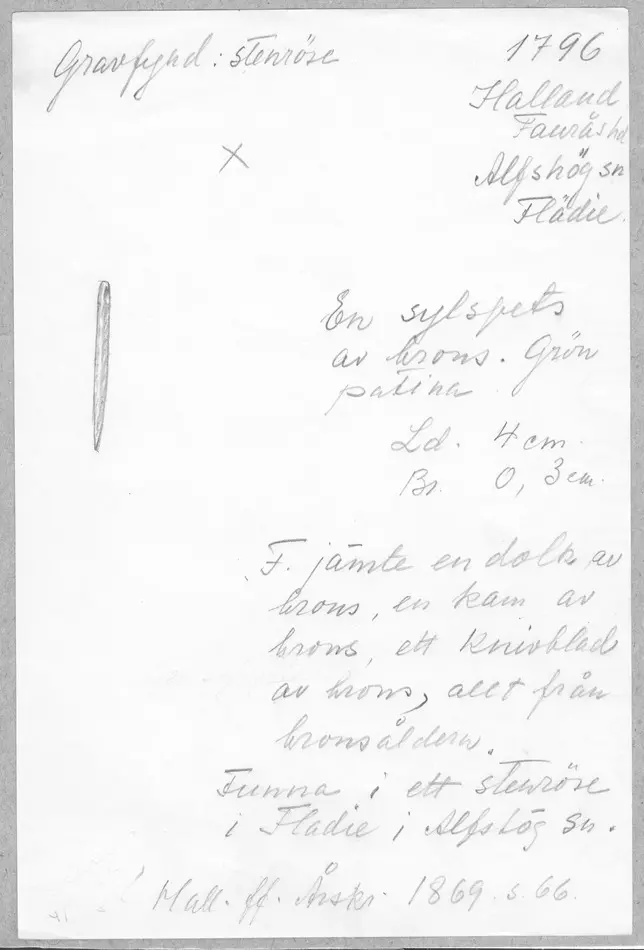 Gravfynd: stenröse
1796
Halland
Faurås hd
Alfshög sn
Flädie.
En sylspets
av brons. Grön
patina
Ld. 4 cm.
Br. 0,3 cm.
F. jämte en dolk av
brons, en kam av
brons, ett knivblad
av brons, allt från
bronsåldern.
Funna i ett stenröse
i Fladie i Alfshög sn.
Hall. ff. Årskr. 1869 s. 66.